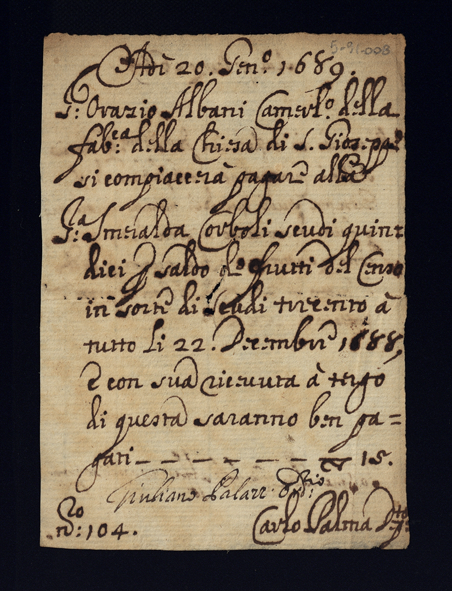 Adì 20. Gen.o 1689.
S.r Orazio Albani Camerl.o della
fab.ca della Chiesa di S. Gioseppe
si compiacerà pagare alla
S.ra Smeralda Corboli scudi quin
dici p saldo de frutti del Censo
in sorte di scudi trecento à
tutto li 22. Decembre 1688,
e con sua ricevuta à tergo
di questa saranno ben pa=
gati — — — — — — 15.
Giuliano
N.ro 104.
Carlo Palma